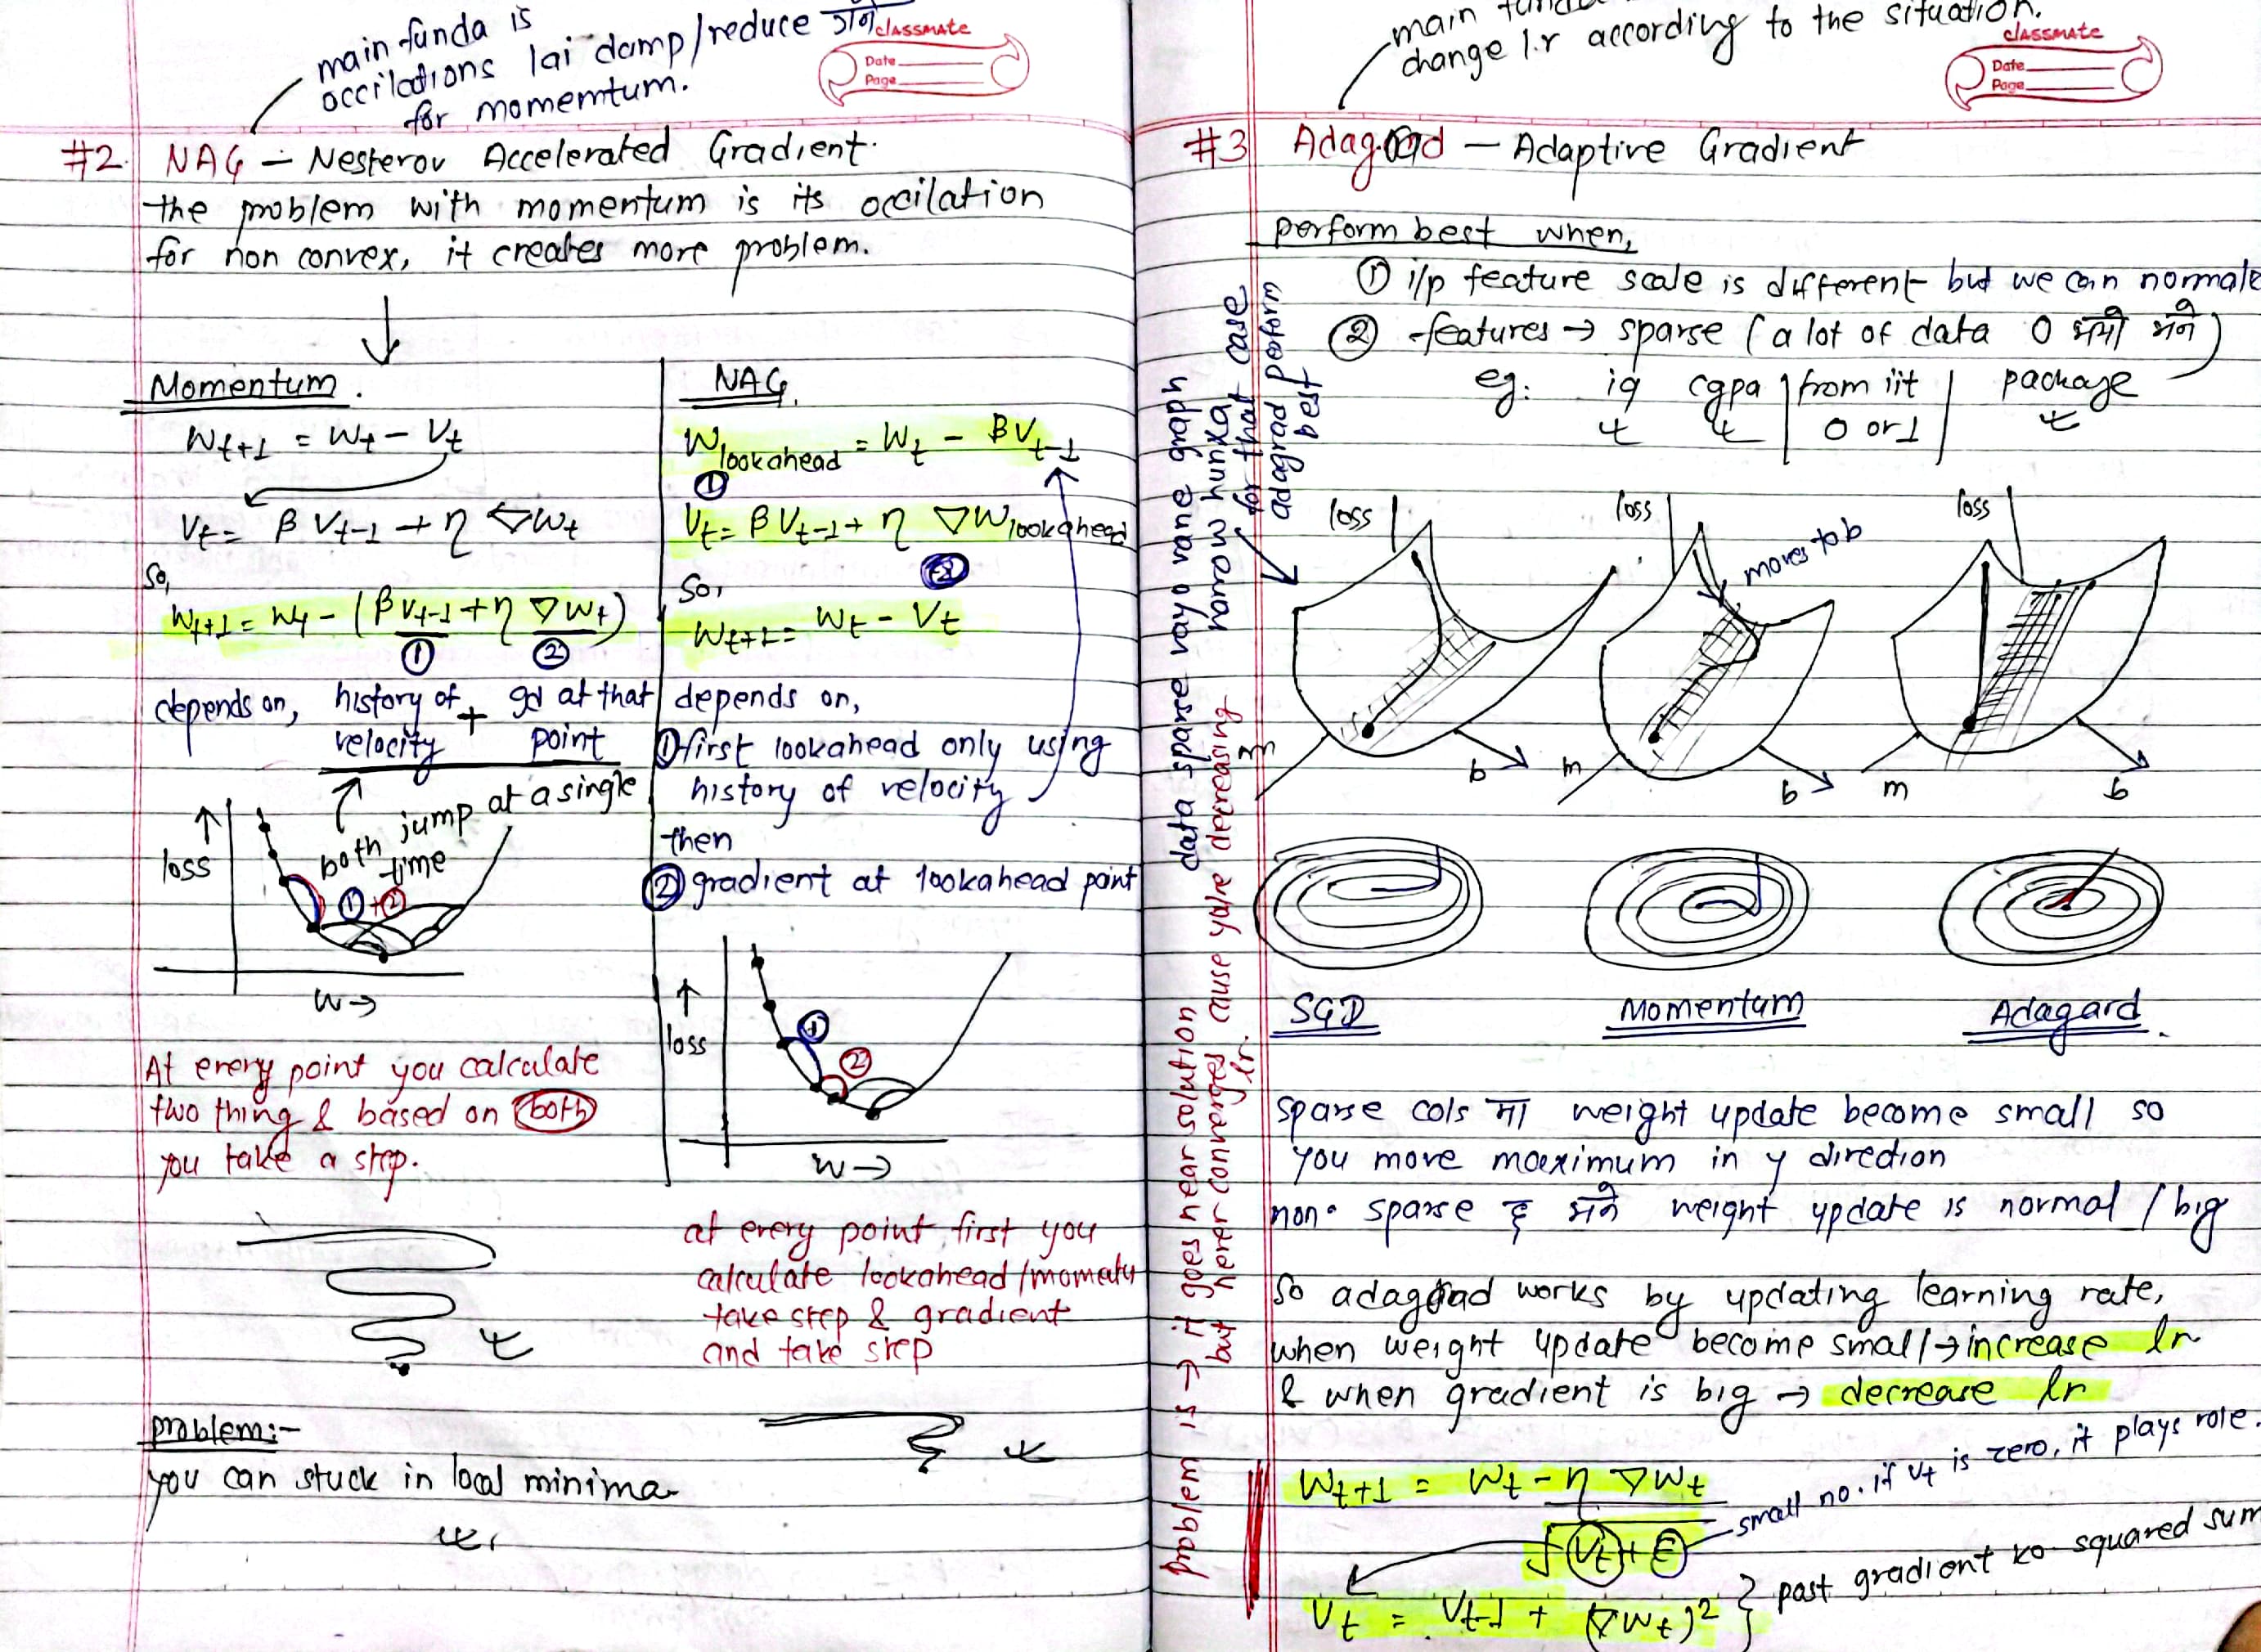 main funda is
occilations lai damp/reduce गर्ने
for momemtum.
classmate
Date
Page
#2 NAG - Nesterov Accelerated Gradient.
the problem with momentum is its occilation
for non convex, it creates more problem.
Momentum.
Wt+1 = Wt - Vt
Vt = β Vt-1 + η ∇Wt
so,
Wt+1 = Wt - (β Vt-1 + η ∇Wt)
① ②
depends on, history of velocity + gd at that point
both jump at a single time
↑ loss
① + ②
W →
At every point you calculate
two thing & based on both
you take a step.
problem:-
you can stuck in local minima
NAG.
Wlookahead = Wt - βVt-1
①
Vt = β Vt-1 + η ∇Wlookahead
②
So,
Wt+1 = Wt - Vt
depends on,
① first lookahead only using
history of velocity
then
② gradient at lookahead point
↑ loss
①
②
W →
at every point, first you
calculate lookahead/momentu
take step & gradient
and take step
main funda
change l.r according to the situation.
classmate
Date
Page
#3 Adagrad - Adaptive Gradient
perform best when,
① i/p feature scale is different but we can normalize
② features → sparse (a lot of data 0 भयो भने)
eg: iq cgpa | from iit | package
0 or 1
data sparse vayo vane graph
narrow hunxa
for that case
adagrad perform
best
loss
m
b
loss
moves to b
m
b
loss
m
b
SGD
Momentum
Adagard.
sparse cols मा weight update become small so
you move maximum in y direction
non-sparse छ भने weight update is normal / big
So adagrad works by updating learning rate,
when weight update become small → increase lr
& when gradient is big → decrease lr
Wt+1 = Wt - η ∇Wt
√Vt + ε
small no. if vt is zero, it plays role.
Vt = Vt-1 + (∇Wt)² } past gradient ko squared sum
problem is → it goes near solution
but never converges cause yo/re decreasing
lr.